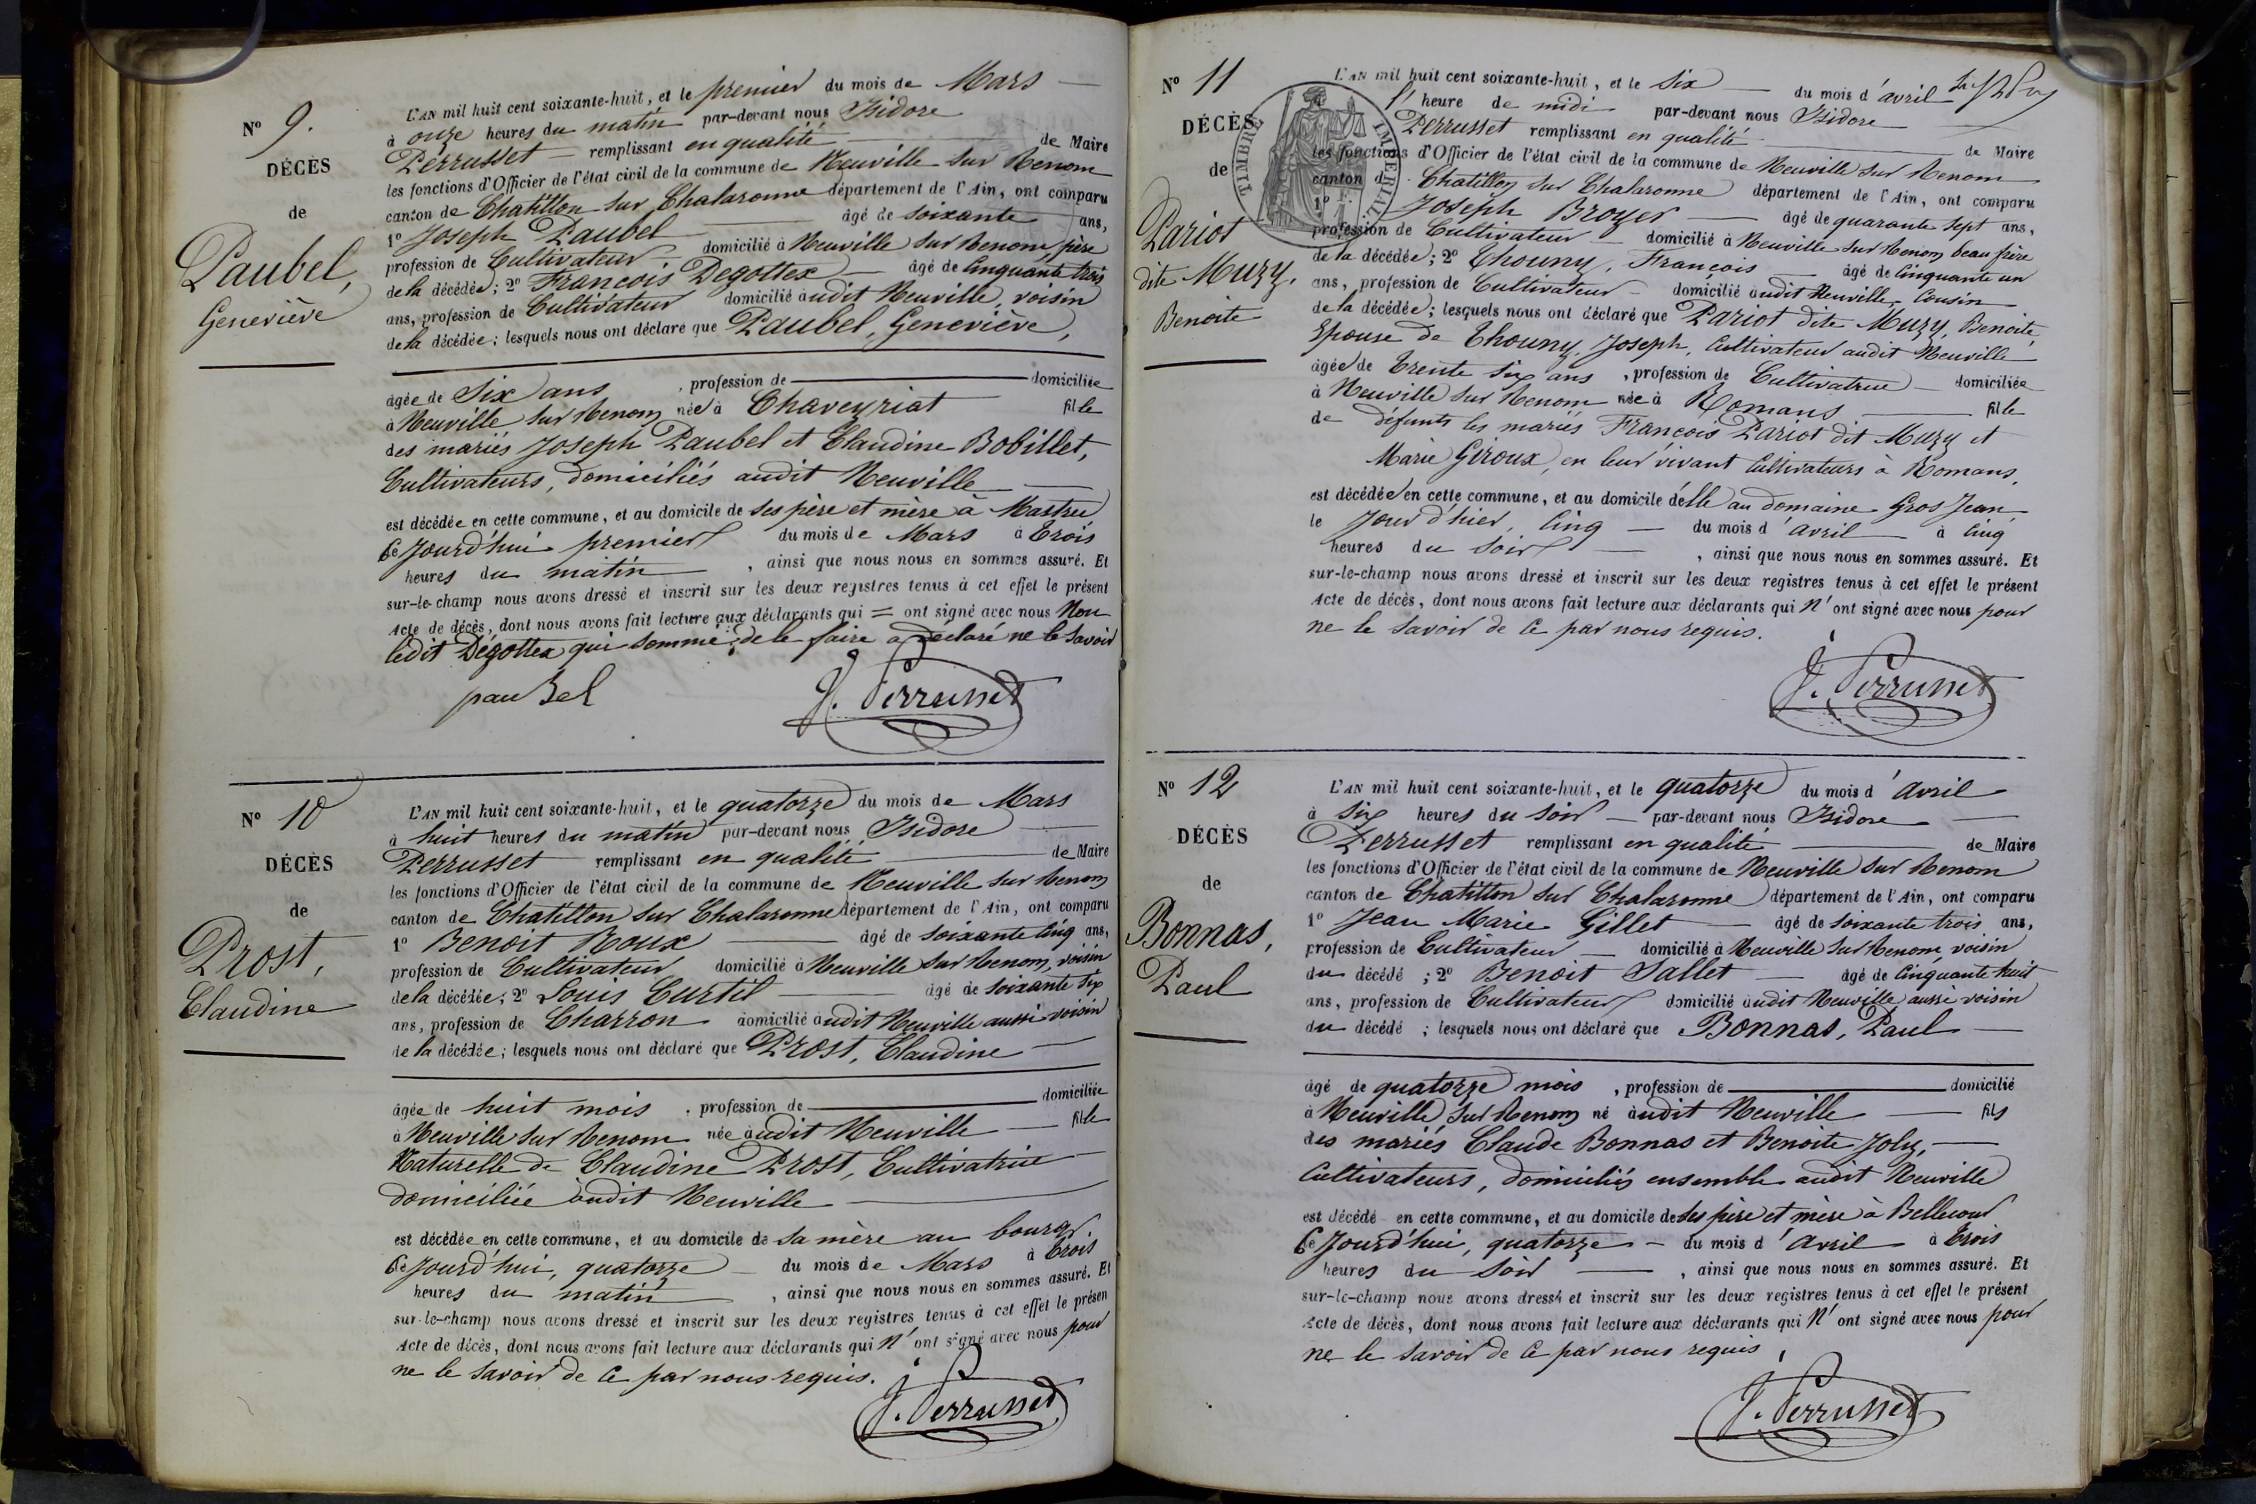 N° 9.
DÉCÈS
de
Paubel,
Geneviève
L'AN mil huit cent soixante-huit, et le premier du mois de Mars
à onze heures du matin par-devant nous Isidore
Perrusset remplissant en qualité de Maire
les fonctions d'Officier de l'état civil de la commune de Neuville sur Renom
canton de Chatillon sur Chalaronne département de l'Ain, ont comparu
1° Joseph Paubel âgé de soixante ans,
profession de Cultivateur domicilié à Neuville sur Renom, père
de la décédée; 2° François Degottex âgé de cinquante trois
ans, profession de Cultivateur domicilié audit Neuville, voisin
de la décédée; lesquels nous ont déclaré que Paubel, Geneviève,
âgée de Six ans, profession de domiciliée
à Neuville sur Renom née à Chaveyriat fille
des mariés Joseph Paubel et Claudine Bobillet,
Cultivateurs, domiciliés audit Neuville
est décédée en cette commune, et au domicile de ses père et mère à Mastru
ce jourd'hui premier du mois de Mars à trois
heures du matin, ainsi que nous nous en sommes assuré. Et
sur-le-champ nous avons dressé et inscrit sur les deux registres tenus à cet effet le présent
Acte de décès, dont nous avons fait lecture aux déclarants qui = ont signé avec nous Non
ledit Dégottex qui sommé de le faire a déclaré ne le savoir
paubel J. Perrusset
N° 10
DÉCÈS
de
Prost,
Claudine
L'AN mil huit cent soixante-huit, et le quatorze du mois de Mars
à huit heures du matin par-devant nous Isidore
Perrusset remplissant en qualité de Maire
les fonctions d'Officier de l'état civil de la commune de Neuville sur Renom
canton de Chatillon sur Chalaronne département de l'Ain, ont comparu
1° Benoit Roux âgé de soixante cinq ans,
profession de Cultivateur domicilié à Neuville sur Renom, voisin
de la décédée; 2° Louis Curtil âgé de soixante six
ans, profession de Charron domicilié audit Neuville aussi voisin
de la décédée; lesquels nous ont déclaré que Prost, Claudine
âgée de huit mois, profession de domiciliée
à Neuville sur Renom née audit Neuville fille
Naturelle de Claudine Prost, Cultivatrice
domiciliée audit Neuville
est décédée en cette commune, et au domicile de sa mère au bourg
ce jourd'hui, quatorze du mois de Mars à trois
heures du matin, ainsi que nous nous en sommes assuré. Et
sur-le-champ nous avons dressé et inscrit sur les deux registres tenus à cet effet le présen
Acte de décès, dont nous avons fait lecture aux déclarants qui n'ont signé avec nous pour
ne le savoir de ce par nous requis.
J. Perrusset
N° 11
DÉCÈS
de
Pariot
dite Muzy,
Benoite
TIMBRE IMPERIAL
L'AN mil huit cent soixante-huit, et le six du mois d'avril
l'heure de midi par-devant nous Isidore
Perrusset remplissant en qualité de Maire
les fonctions d'Officier de l'état civil de la commune de Neuville sur Renom
canton de Chatillon sur Chalaronne département de l'Ain, ont comparu
1° Joseph Broyer âgé de quarante sept ans,
profession de Cultivateur domicilié à Neuville sur Renom, beau frère
de la décédée; 2° Thouny, François âgé de cinquante un
ans, profession de Cultivateur domicilié audit Neuville, Cousin
de la décédée; lesquels nous ont déclaré que Pariot dite Muzy, Benoite,
Epouse de Thouny, Joseph, Cultivateur audit Neuville
âgée de trente six ans, profession de Cultivatrice domiciliée
à Neuville sur Renom née à Romans fille
de défunts les mariés François Pariot dit Muzy et
Marie Giroux, en leur vivant Cultivateurs à Romans,
est décédée en cette commune, et au domicile d'elle au domaine Gros Jean
le jour d'hier, cinq du mois d'avril à cinq
heures du soir, ainsi que nous nous en sommes assuré. Et
sur-le-champ nous avons dressé et inscrit sur les deux registres tenus à cet effet le présent
Acte de décès, dont nous avons fait lecture aux déclarants qui n'ont signé avec nous pour
ne le savoir de ce par nous requis.
J. Perrusset
N° 12
DÉCÈS
de
Bonnas,
Paul
L'AN mil huit cent soixante-huit, et le quatorze du mois d'avril
à six heures du soir par-devant nous Isidore
Perrusset remplissant en qualité de Maire
les fonctions d'Officier de l'état civil de la commune de Neuville sur Renom
canton de Chatillon sur Chalaronne département de l'Ain, ont comparu
1° Jean Marie Gillet âgé de soixante trois ans,
profession de Cultivateur domicilié à Neuville sur Renom, voisin
du décédé; 2° Benoit Sallet âgé de cinquante huit
ans, profession de Cultivateur domicilié audit Neuville aussi voisin
du décédé; lesquels nous ont déclaré que Bonnas, Paul
âgé de quatorze mois, profession de domicilié
à Neuville sur Renom né audit Neuville fils
des mariés Claude Bonnas et Benoite Joly,
Cultivateurs, domiciliés ensemble audit Neuville
est décédé en cette commune, et au domicile de ses père et mère à Bellecour
ce jourd'hui, quatorze du mois d'avril à trois
heures du soir, ainsi que nous nous en sommes assuré. Et
sur-le-champ nous avons dressé et inscrit sur les deux registres tenus à cet effet le présent
Acte de décès, dont nous avons fait lecture aux déclarants qui n'ont signé avec nous pour
ne le savoir de ce par nous requis.
J. Perrusset